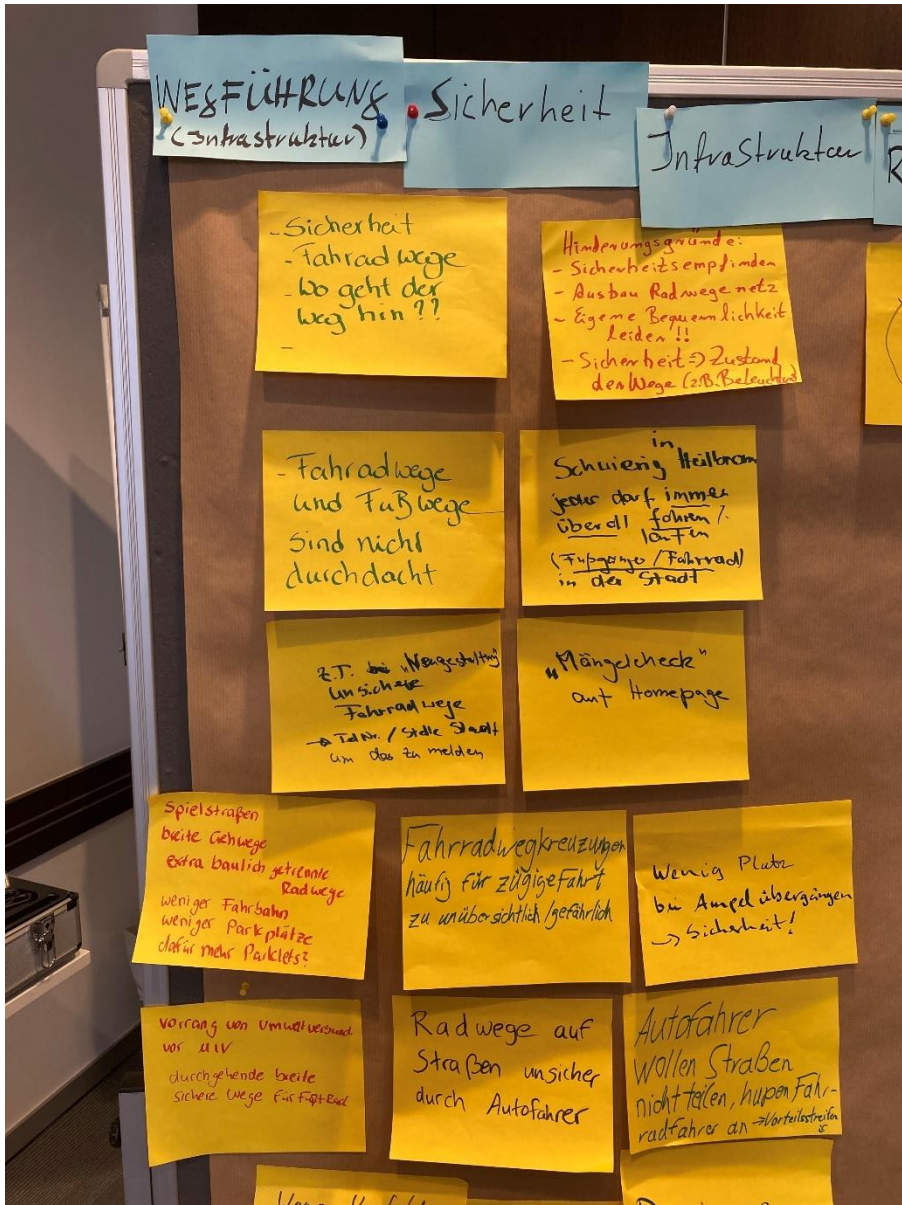 WEGFÜHRUNG
(Infrastruktur)
Sicherheit
Infrastruktur
R
- Sicherheit
- Fahradwege
- Wo geht der
Weg hin??
-
Hinderungsgründe:
- Sicherheitsempfinden
- Ausbau Radwegenetz
- Eigene Bequemlichkeit
leider!!
- Sicherheit => Zustand
der Wege (z.B. Beleuchtung)
- Fahradwege
und Fußwege
sind nicht
durchdacht
in
Schwierig Heilbronn
jeder darf immer
überall fahren /
laufen
(Fußgänger / Fahrrad)
in der Stadt
z.T. bei "Neugestaltung"
unsichere
Fahrradwege
→ Tel Nr. / Stelle Stadt
um das zu melden
"Mängelcheck"
auf Homepage
Spielstraßen
breite Gehwege
extra baulich getrennte
Radwege
weniger Fahrbahn
weniger Parkplätze
dafür mehr Parklets?
Fahrradwegkreuzungen
häufig für zügige Fahrt
zu unübersichtlich/gefährlich
Wenig Platz
bei Ampelübergängen
→ Sicherheit!
Vorrang von Umweltverbund
vor MIV
durchgehende breite
sichere Wege für Fuß+Rad
Radwege auf
Straßen unsicher
durch Autofahrer
Autofahrer
wollen Straßen
nicht teilen, hupen Fahr-
radfahrer an →Vorteilsstreifen